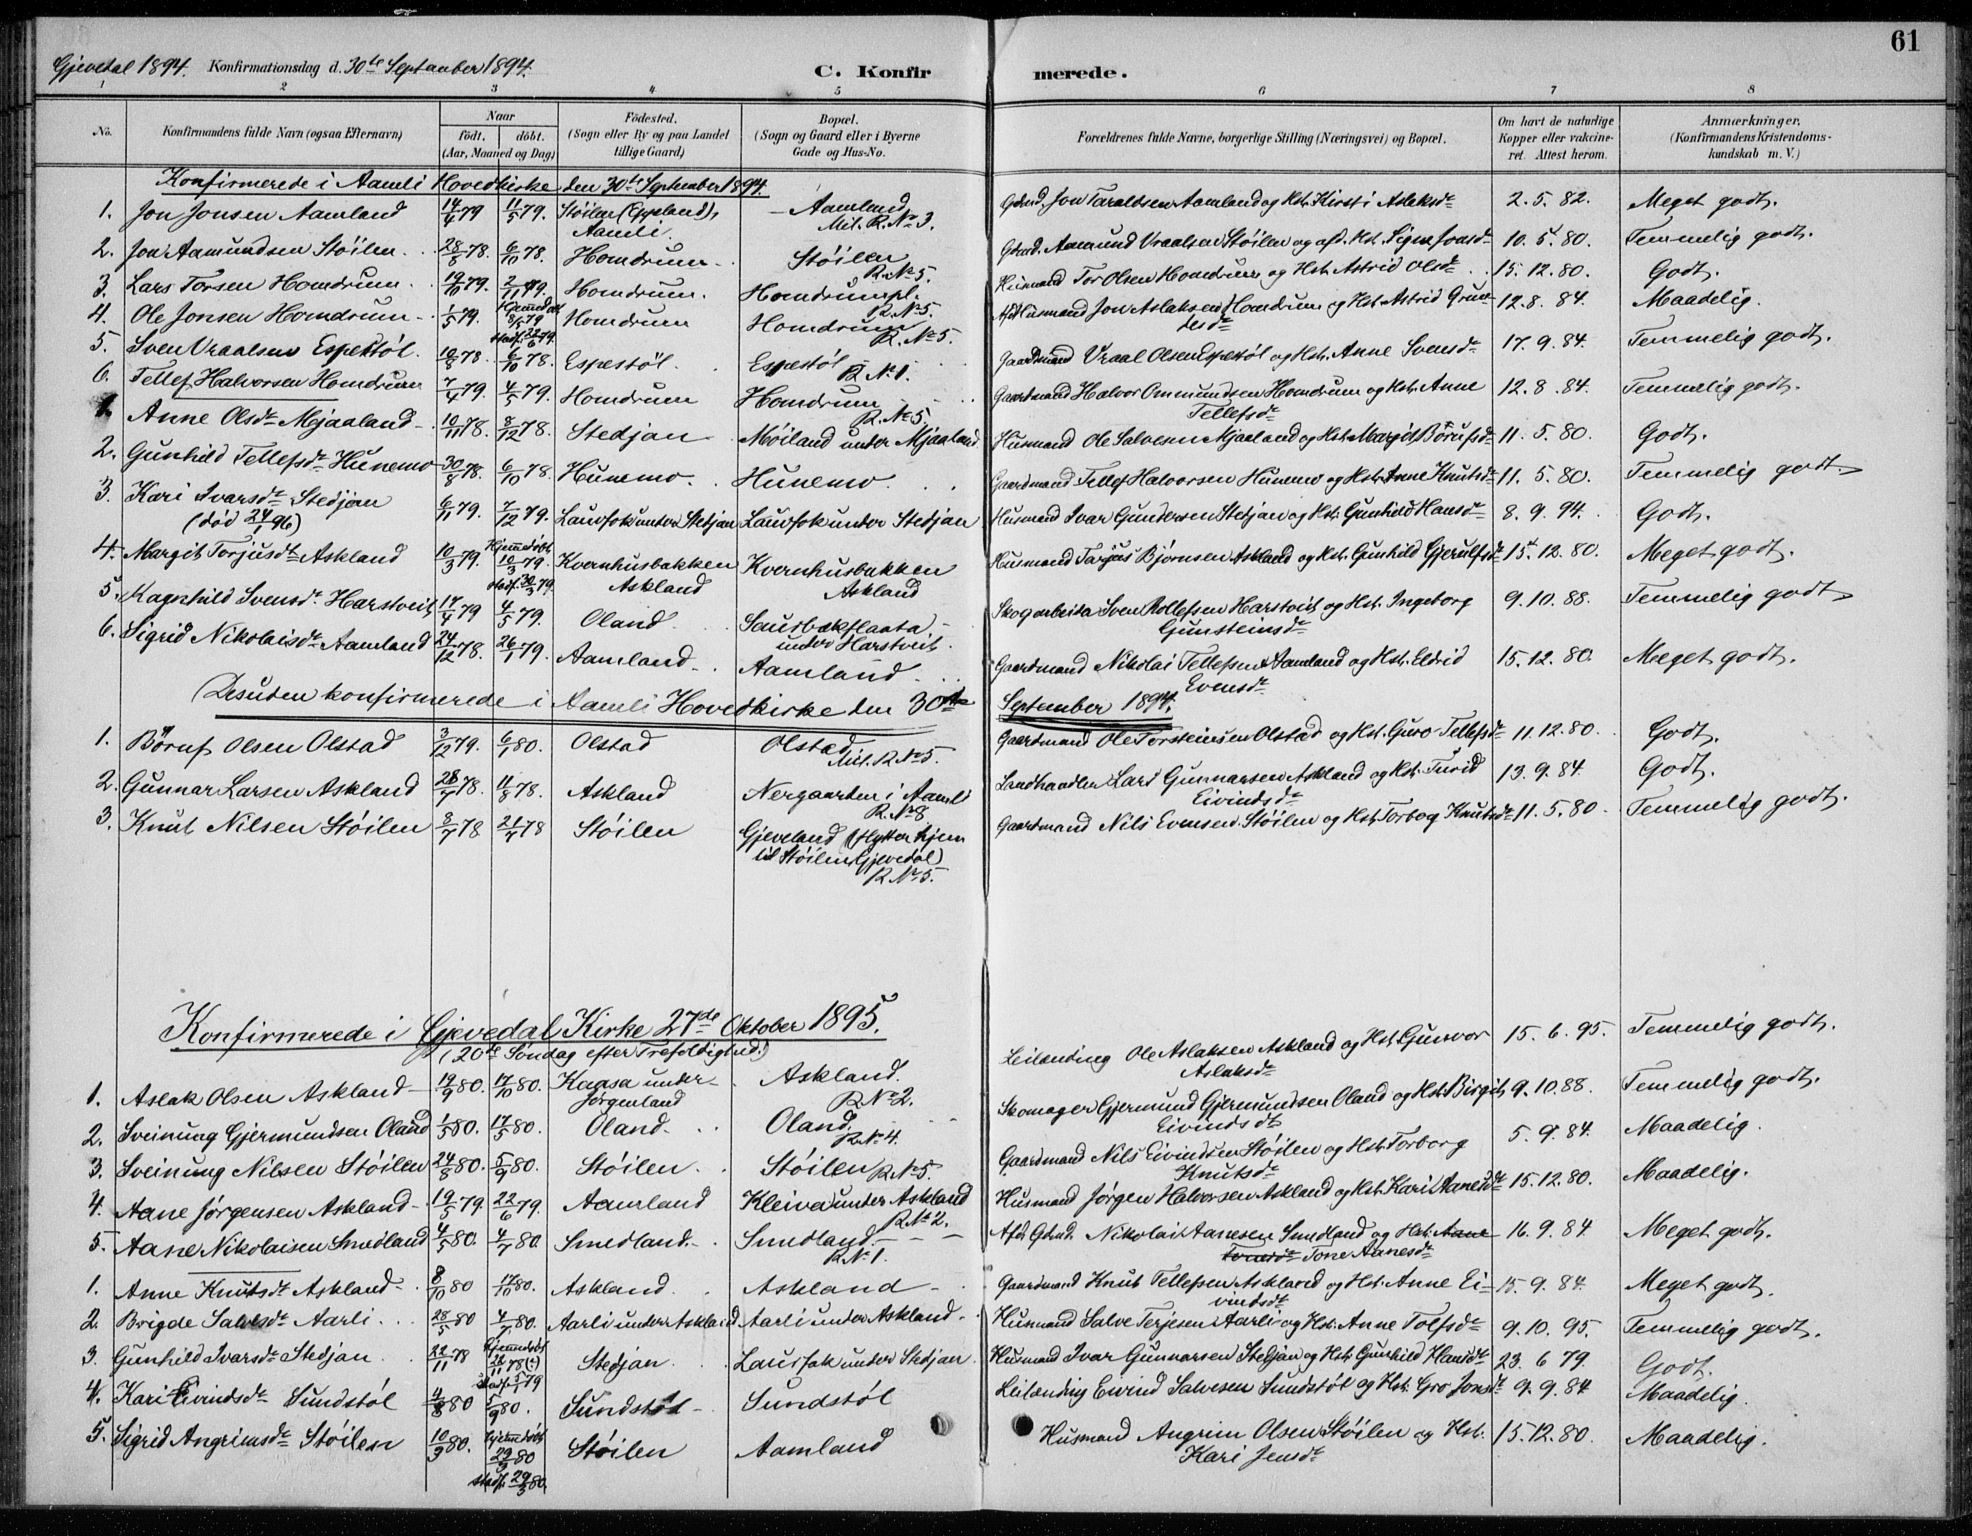 61
Gjevedal 1894. Konfirmationsdag d. 30te September 1894. C. Konfirmerede.
1 2 3 4 5 6 7 8
No. Konfirmandens fulde Navn (ogsaa Efternavn) Naar födt. döbt. (Aar, Maaned og Dag) Födested. (Sogn eller By og paa Landet tillige Gaard) Bopæl. (Sogn og Gaard eller i Byerne Gade og Hus-No. Forældrenes fulde Navne, borgerlige Stilling (Næringsvei) og Bopæl. Om havt de naturlige Kopper eller vakcineret. Attest herom. Anmærkninger. (Konfirmandens Kristendomskundskab m. V.)
Konfirmerede i Aamli Hovedkirke den 30te September 1894.
1. Jon Jonsen Aamland 14/4 79 11/5 79. Stöilen (Eppeland), Aamli. Aamland Mil. R. No 3. Gdmd. Jon Taraldsen Aamland og Hst. Kirsti Aslaksdt 2. 5. 82. Meget godt.
2. Jon Aamundsen Stöilen 28/8 78. 6/10 78. Homdrum Stöilen R. No 5. Gdmd. Aamund Vraalsen Stöilen og afd. Hst. Signe Jonsdt 10. 5. 80. Temmelig godt.
3. Lars Torsen Homdrum 19/10 79. 2/11 79. Homdrum. Homdrumspl. R. No 5. Husmand Tor Olsen Homdrum og Hst. Astrid Olsdt 15. 12. 80. Godt.
4. Ole Jonsen Homdrum 1/5 79. Hjemdöbt 8/5 79 stadf. 22/6 79. Homdrum Homdrum R. No 5. Afd. Husmand Jon Aslaksen Homdrum og Hst. Astrid Grundesdt 12. 8. 84. Maadelig.
5. Sven Vraalsen Espestöl. 10/8 78. 6/10 78. Espestöl. Espestöl R. No 1. Gaardmand Vraal Olsen Espestöl og Hst. Anne Svensdt 17. 9. 84. Temmelig godt.
6. Tellef Halvorsen Homdrum 7/4 79. 4/5 79. Homdrum Homdrum R. No 5. Gaardmand Halvor Ommundsen Homdrum og Hst. Anne Tellefsdt 12. 8. 84. Temmelig godt.
1. Anne Olsdt Mjaaland 10/11 78. 8/12 78. Stedjan Möiland under Mjaaland Husmand Ole Salvesen Mjaaland og Hst. Margit Börufsdt 11. 5. 80. Godt.
2. Gunhild Tellefsdt Hunemo 30/8 78. 6/10 78. Hunemo. Hunemo. Gaardmand Tellef Halvorsen Hunemo og Hst. Anne Knutsdt 11. 5. 80. Temmelig godt.
3. Kari Ivarsdt Stedjan (död 24/1 96) 6/11 79. 7/12 79. Lauvfok under Stedjan Lauvfok under Stedjan Husmand Ivar Gundersen Stedjan og Hst. Gunhild Hansdt 8. 9. 94. Godt.
4. Margit Torjusdt Askland 10/3 79. Hjemdöbt 10/3 79. stadf. 30/3 79. Kvernhusbakken Askland Kvernhusbakken Askland Husmand Torjus Björnsen Askland og Hst. Gunhild Gjerulfsdt 15. 12. 80. Meget godt.
5. Ragnhild Svensdt Harstveit 17/4 79 4/5 79. Oland. Saursbækflaata under Harstveit. Skogarbeider Sven Rollefsen Harstveit og Hst. Ingeborg Gunsteinsdt 9. 10. 88. Temmelig godt
6. Sigrid Nikolaisdt Aamland 24/12 78. 26/1 79. Aamland. Aamland. Gaardmand Nikolai Tellefsen Aamland og Hst. Eldrid Evensdt 15. 12. 80. Meget godt.
Desuden konfirmerede i Aamli Hovedkirke den 30te September 1894.
1. Böruf Olsen Olstad 3/12 79. 6/1 80. Olstad Olstad Mil. R. No 5. Gaardmand Ole Torsteinsen Olstad og Hst. Guro Tellefsdt 11. 12. 80. Godt.
2. Gunnar Larsen Askland 28/7 78. 11/8 78. Askland Nergaarden i Aamli R. No 8 Landhandler Lars Gunnarsen Askland og Hst. Turid Eivindsdt 13. 9. 84. Godt.
3. Knut Nilsen Stöilen 3/4 78 21/4 78 Stöilen Gjeveland (flytter hjem til Stöilen, Gjevedal) R. No 5. Gaardmand Nils Evensen Stöilen og Hst. Torborg Knutsdt 11. 5. 80. Temmelig godt.
Konfirmerede i Gjevedal Kirke 27de Oktober 1895.
(20de Söndag efter Trefoldighed.)
1. Aslak Olsen Askland 19/9 80. 17/10 80. Kaasa under Jörgenland Askland. R. No 2. Leilænding Ole Aslaksen Askland og Hst. Gunvor Aslaksdt 15. 6. 95. Temmelig godt.
2. Sveinung Gjermundsen Oland 1/5 80. 17/5 80. Oland. Oland. R. No 4. Skomager Gjermund Gjermundsen Oland og Hst. Birgit Eivindsdt 9. 10. 88. Temmelig godt.
3. Sveinung Nilsen Stöilen 24/8 80. 5/9 80. Stöilen. Stöilen R. No 5. Gaardmand Nils Eivindsen Stöilen og Hst. Torborg Knutsdt 5. 9. 84. Maadelig.
4. Aane Jörgensen Askland 19/5 79. 22/6 79. Aamland Kleiva under Askland R. No 2. Husmand Jörgen Halvorsen Askland og Hst. Kari Aanesdt 15. 12. 80. Maadelig.
5. Aane Nikolaisen Smedland 4/5 80. 4/7 80. Smedland. Smedland. R. No 1. Afd. Gdmd. Nikolai Aanesen Smedland og Hst. Tone Aanesdt 16. 9. 84. Meget godt.
1. Anne Knutsdt Askland 8/10 80 17/10 80. Askland. Askland Gaardmand Knut Tellefsen Askland og Hst. Anne Eivindsdt 15. 9. 84. Meget godt.
2. Brigde Salvesdt Aarli 28/5 80 4/7 80. Aarli under Askland Aarli under Askland. Husmand Salve Terjesen Aarli og Hst. Anne Tolfsdt 9. 10. 95. Temmelig godt.
3. Gunhild Ivarsdt Stedjan 22/11 78 Hjemdöbt 22/11 78 stadf. 5/1 79 Stedjan Lauvfok under Stedjan Husmand Ivar Gunnarsen Stedjan og Hst. Gunhild Hansdt 23. 6 79. Godt.
4. Kari Eivindsdt Sundstöl 4/8 80 5/9 80. Sundstöl Sundstöl Leilænding Eivind Salvesen Sundstöl og Hst. Gro Jonsdt 9. 9. 84 Maadelig.
5. Sigrid Angrimsdt Stöilen 10/3 80. Hjemdöbt 29/3 80 stadf. 29/3 80. Stöilen Aamland Husmand Angrim Olsen Stöilen og Hst. Kari Jensdt 15. 12. 80. Maadelig.